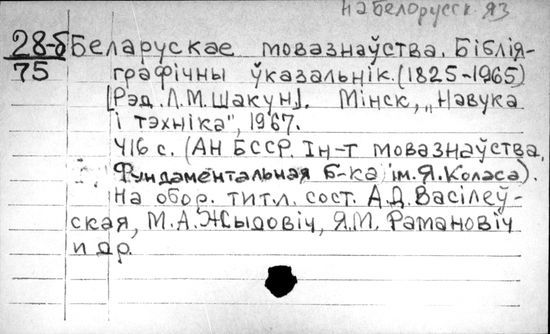 на белорусск. яз
28-б Беларускае мовазнаўства. Бiблiя-
75 графiчны ўказальнiк. (1825-1965)
[Рэд. Л.М. Шакун]. Мiнск, „Навука
i тэхнiка", 1967.
416 с. (АН БССР. Iн-т мовазнаўства.
Фундаментальная б-ка iм. Я. Коласа).
На обор. титл. сост. А.Д. Васiлеў-
ская, М.А. Жыдовiч, Я.М. Рамановiч
и др.